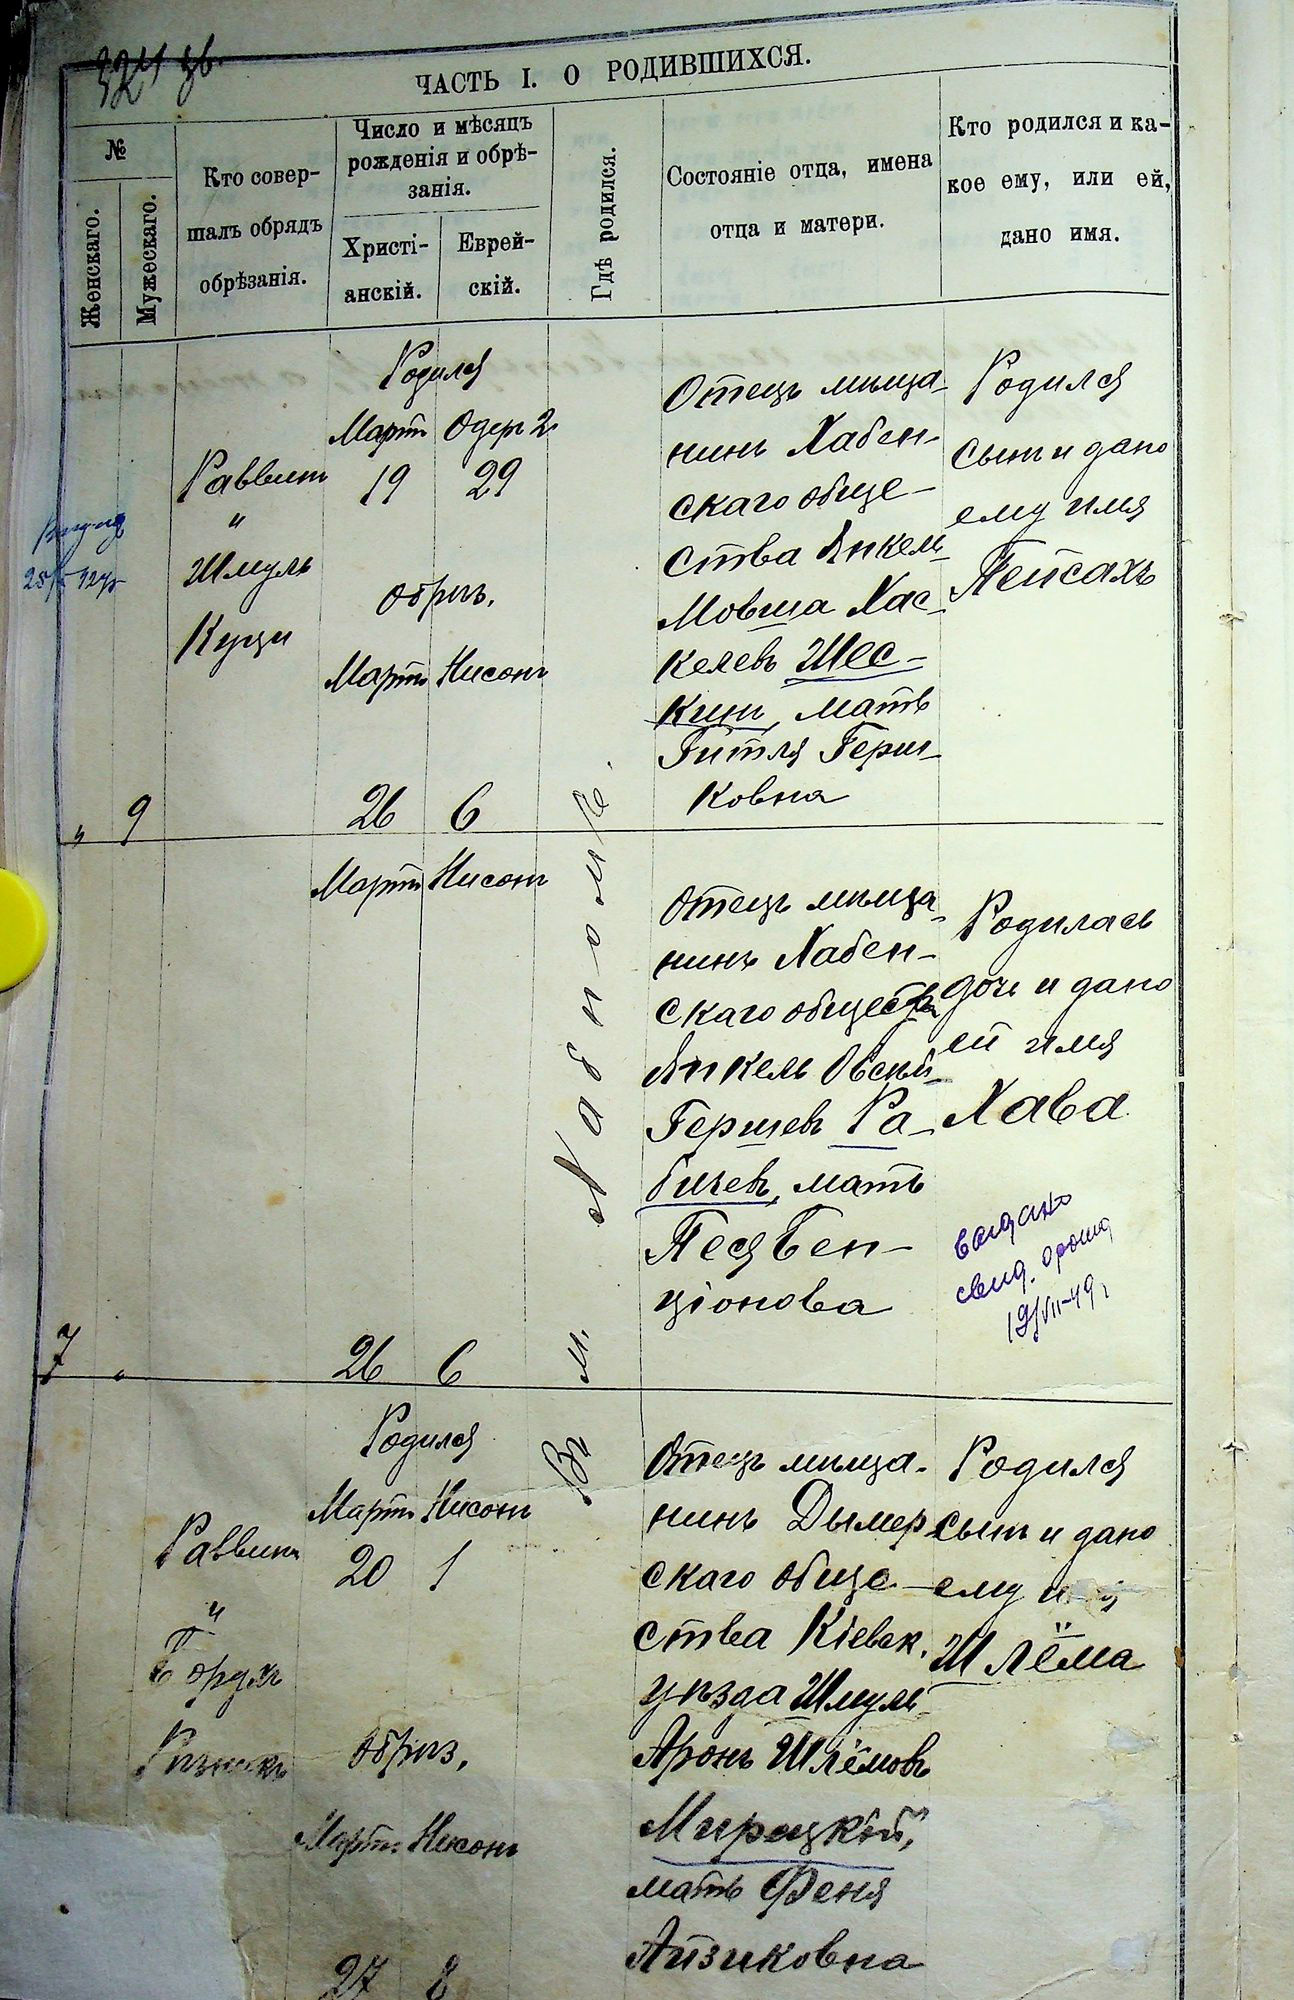 324 зв.
ЧАСТЬ I. О РОДИВШИХСЯ.
№
Женскаго.
Мужескаго.
Кто совер-
шалъ обрядъ
обрѣзанія.
Число и мѣсяцъ
рожденія и обрѣ-
занія.
Христі-
анскій.
Еврей-
скій.
Гдѣ родился.
Состояніе отца, имена
отца и матери.
Кто родился и ка-
кое ему, или ей,
дано имя.
" 9
Раввинъ
"
Шмуль
Куци
Родился
Мартъ Одеръ 2
19 29
Обрѣз.
Мартъ Нисонъ
26 6
Отецъ мѣща-
нинъ Хабен-
скаго обще-
ства Янкель
Мовша Хас-
келевъ Шес-
кинъ, мать
Гитля Герш-
ковна
Родился
сынъ и дано
ему имя
Пейсахъ
7 "
Мартъ Нисонъ
26 6
Отецъ мѣща-
нинъ Хабен-
скаго общества
Янкель Овсей-
Гершевъ Ра-
бичев, мать
Песя Бен-
ціонова
Родилась
дочь и дано
ей имя
Хава
выдано
свид. о рожд
19/VII-49 г
Въ м. Хабномъ.
Раввинъ
"
Борухъ
Рѣзникъ
Родился
Мартъ Нисонъ
20 1
Обрѣз.
Мартъ Нисонъ
27 8
Отецъ мѣща-
нинъ Дымер
скаго обще-
ства Кіевск.
уѣзда Шмуль-
Аронъ Шлёмовъ
Мирацкій,
мать Феня
Айзиковна
Родился
сынъ и дано
ему
Шлёма